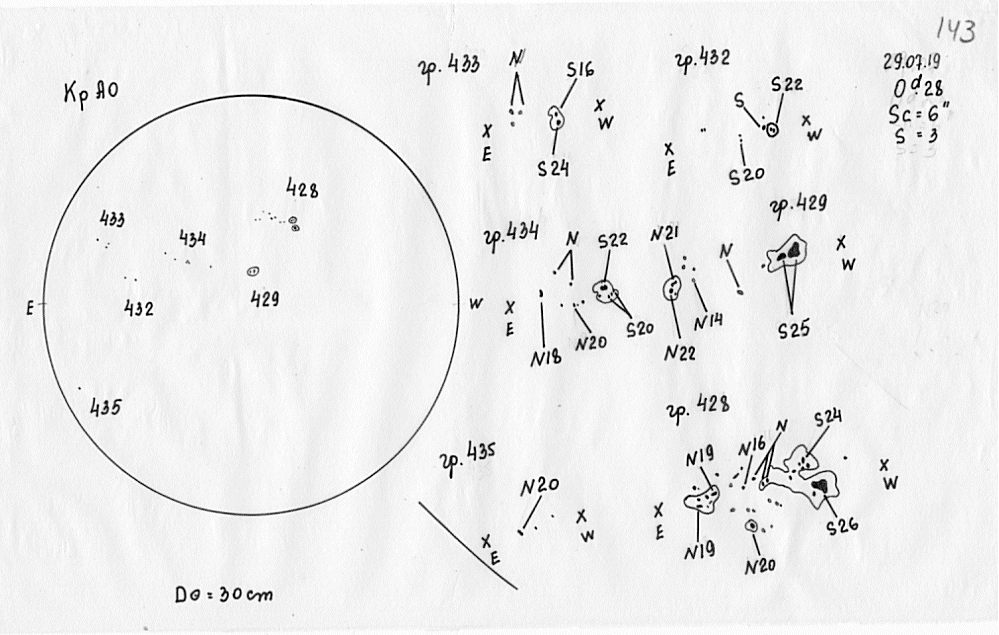 143
КрАО
29.07.19
0ᵈ.28
Sc = 6"
S = 3
433
434
428
432
429
435
E
W
D⊙ = 30 cm
гр. 433
N
S16
X
W
X
E
S24
гр. 432
S
S22
X
W
X
E
S20
гр. 434
N
S22
N21
X
E
N18
N20
S20
N22
N14
гр. 429
N
X
W
S25
гр. 435
N20
X
W
X
E
гр. 428
N19
N16
N
S24
X
W
X
E
N19
N20
S26